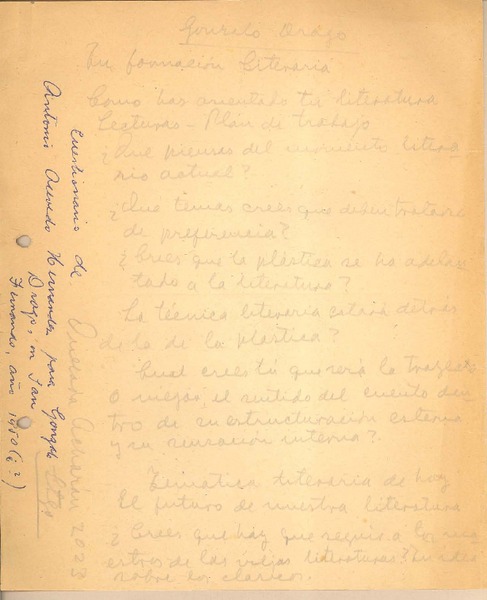 Gonzalo Drago
Tu formación Literaria
Como has orientado tu literatura
Lecturas - Plan de trabajo
¿Que piensas del movimiento litera-
rio actual?
¿Qué temas crees que deben tratarse
de preferencia?
¿Crees que la plástica se ha adelan-
tado a la literatura?
La técnica literaria estará detras
de la de la plástica?
Cual crees tú que será la trayect
o mejor, el sentido del cuento den-
tro de su estructuración externa
y su sensación interna?
Temática literaria de hoy
El futuro de nuestra literatura
¿Crees que hay que seguir a los
estros de las viejas literaturas?
sobre los clásicos.
Cuestionario de
Antonio Acevedo Hernández para Gonzalo
Drago, en San
Fernando, año 1950 (¿?)
2023
Stgo